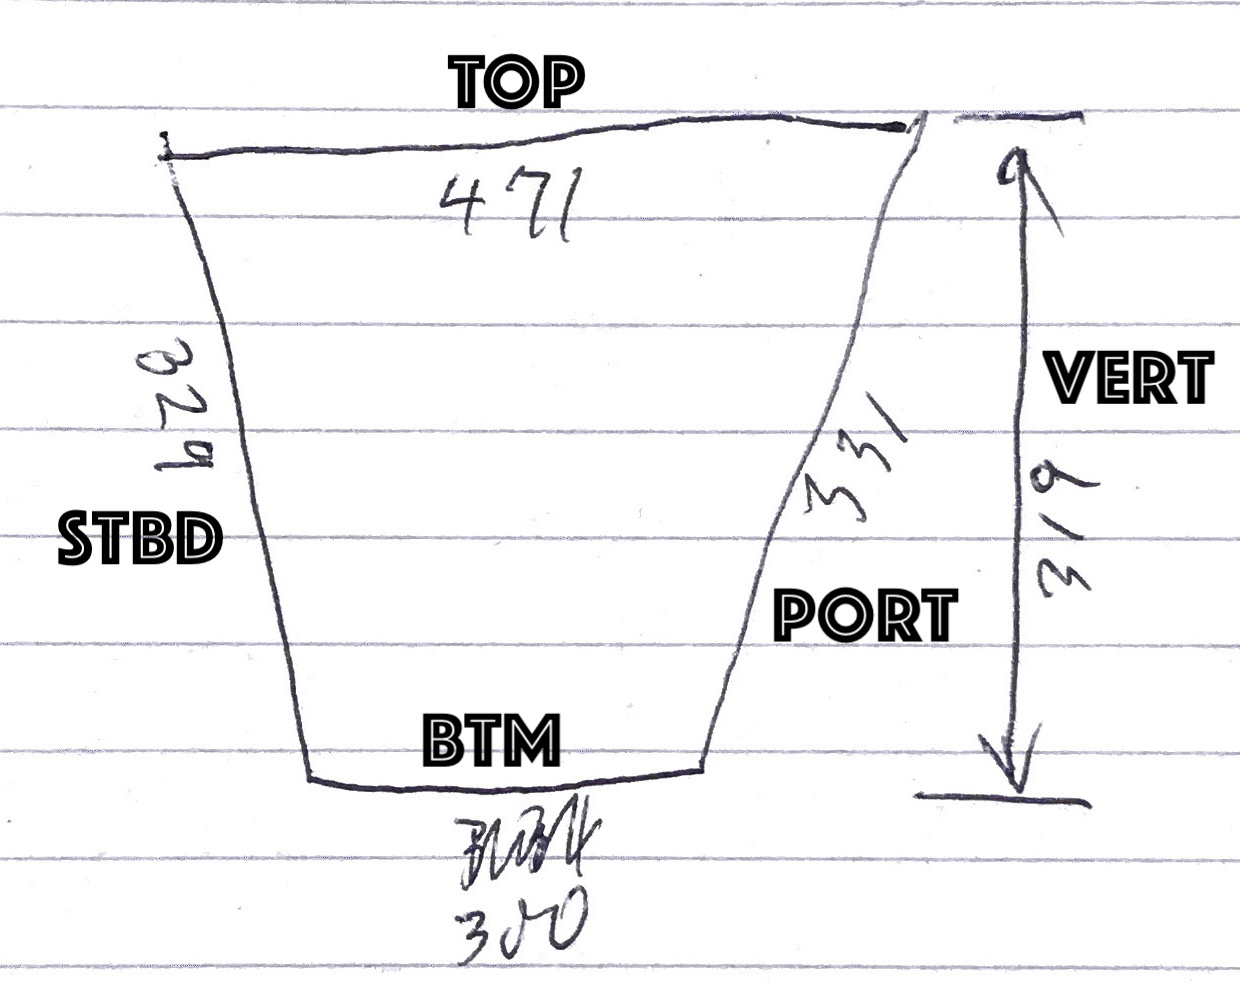 TOP
471
329
STBD
331
PORT
VERT
319
BTM
300